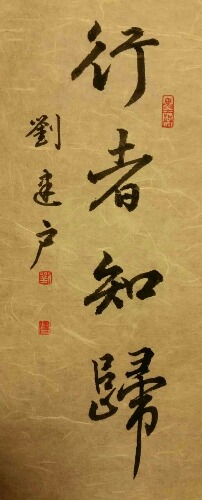 行者知歸
劉建户